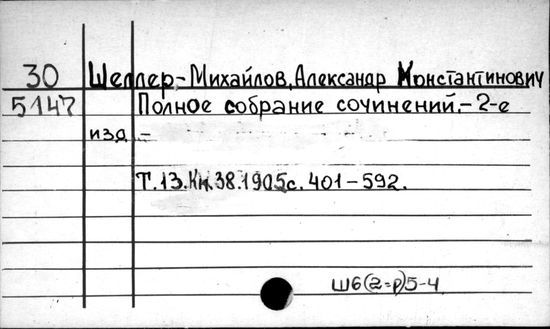 30 Шеллер-Михайлов, Александр Константинович
5147 Полное собрание сочинений.- 2-е
изд.-
Т.13.Кн.38.1905 с. 401-592.
Ш6(2=р)5-4